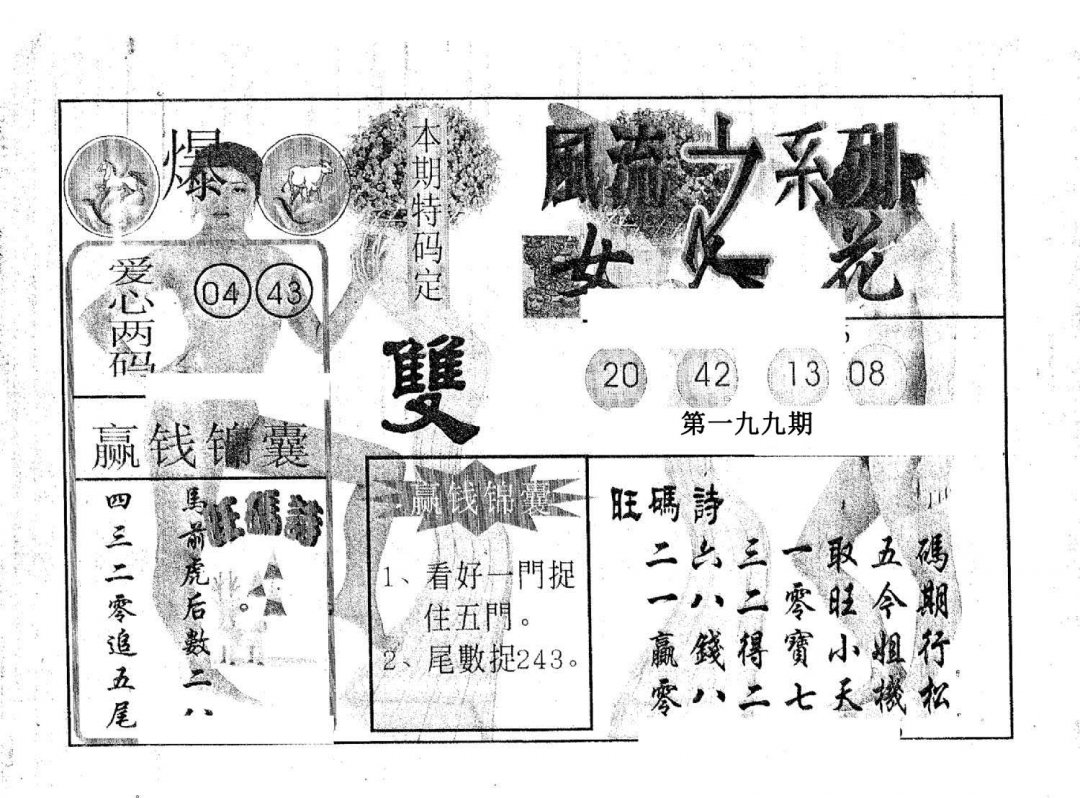 爆
爱心两码
04 43
赢钱锦囊
旺碼詩
馬前虎后數二八。
四三二零追五尾
本期特码定
雙
赢钱锦囊
1、看好一門捉
住五門。
2、尾數捉243。
風流之系列
女人花
20 42 13 08
第一九九期
旺碼詩
碼期行松
五今姐機
取旺小天
一零寶七
三二得二
六八錢八
二一贏零